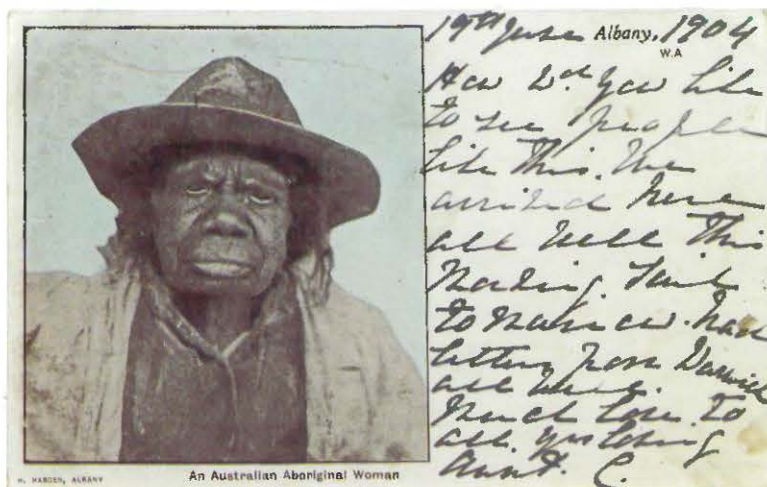 19th June Albany, 1904
W.A
How Wd. You like
to see people
like this. We
arrived here
all well this
Morning. Sail
to morrow. Had
letters from Warwick
all well.
Much love to
all. yr loving
Aunt. C.
H. MARDEN, ALBANY
An Australian Aboriginal Woman